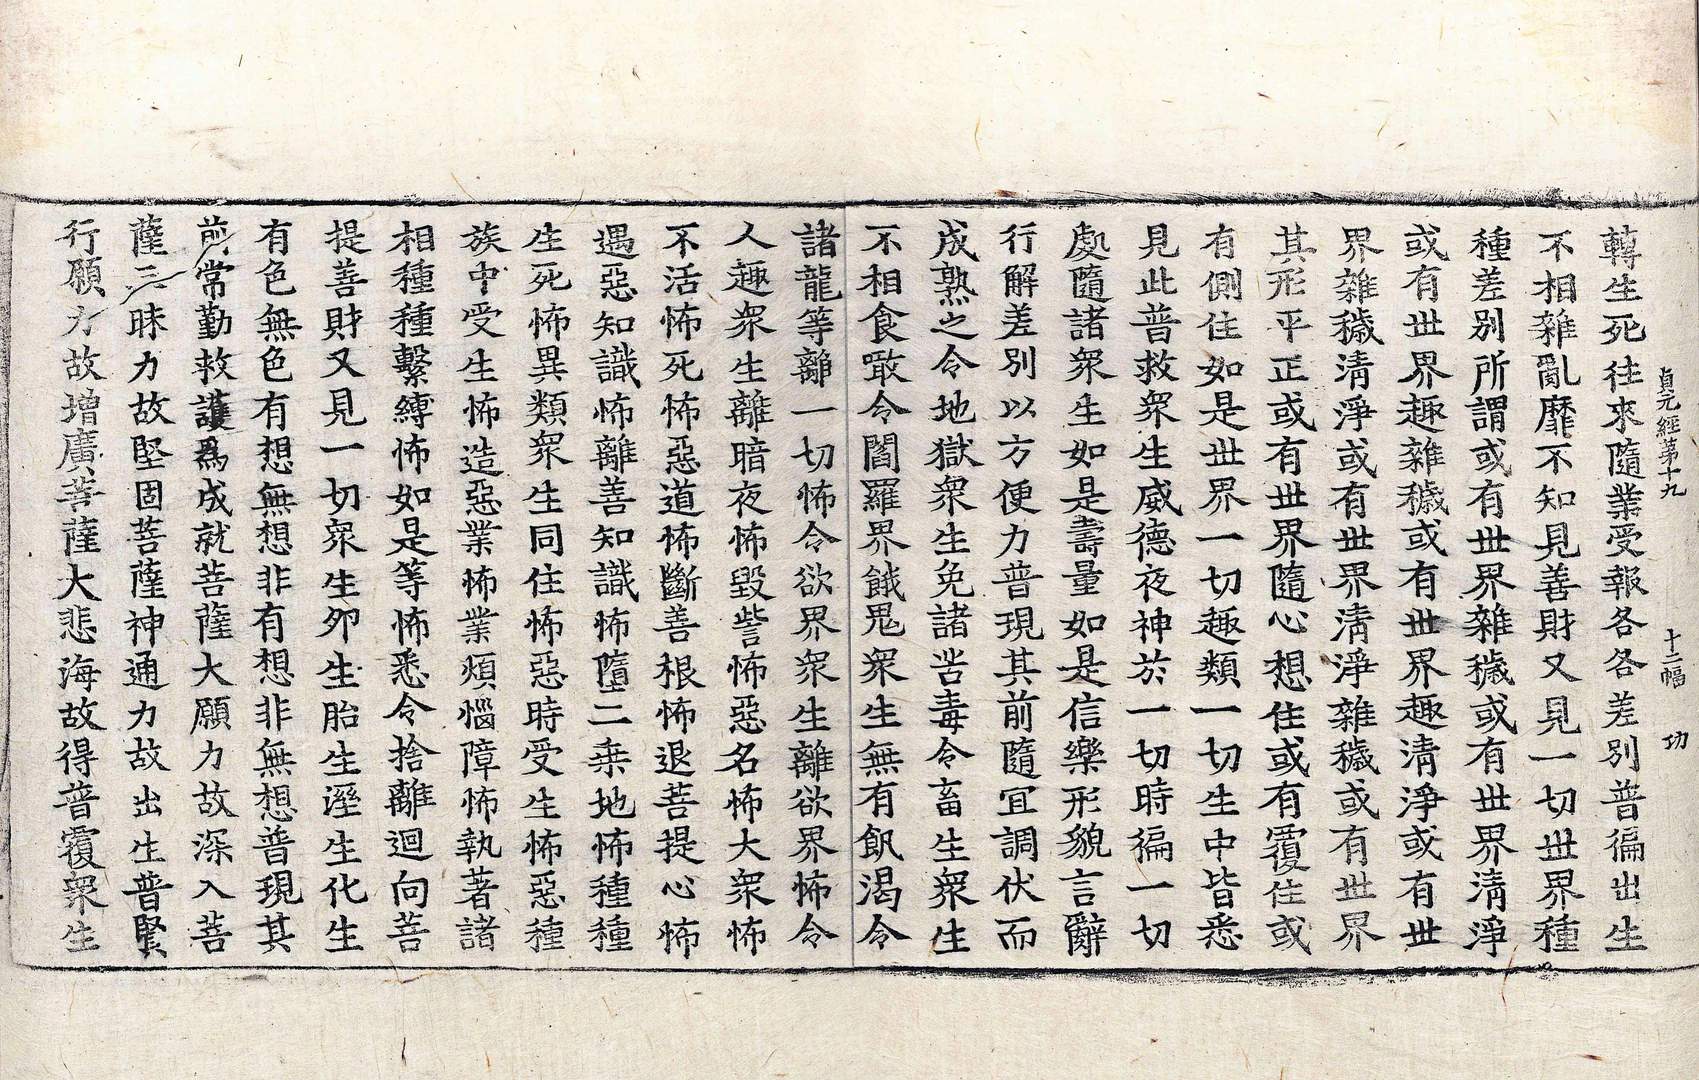 貞元經第十九 十二幅 功
轉生死往來隨業受報各各差別普徧出生
不相雜亂靡不知見善財又見一切世界種
種差別所謂或有世界雜穢或有世界淸淨
或有世界趣雜穢或有世界趣淸淨或有世
界雜穢淸淨或有世界淸淨雜穢或有世界
其形平正或有世界隨心想住或有覆住或
有側住如是世界一切趣類一切生中皆悉
見此普救衆生威德夜神於一切時徧一切
處隨諸衆生如是壽量如是信樂形貌言辭
行解差別以方便力普現其前隨宜調伏而
成熟之令地獄衆生免諸苦毒令畜生衆生
不相食噉令閻羅界餓鬼衆生無有飢渴令
諸龍等離一切怖令欲界衆生離欲界怖令
人趣衆生離暗夜怖毀訾怖惡名怖大衆怖
不活怖死怖惡道怖斷善根怖退菩提心怖
遇惡知識怖離善知識怖墮二乘地怖種種
生死怖異類衆生同住怖惡時受生怖惡種
族中受生怖造惡業怖業煩惱障怖執著諸
相種種繫縛怖如是等怖悉令捨離迴向菩
提善財又見一切衆生卵生胎生溼生化生
有色無色有想無想非有想非無想普現其
前常勤救護爲成就菩薩大願力故深入菩
薩三昧力故堅固菩薩神通力故出生普賢
行願力故增廣菩薩大悲海故得普覆衆生